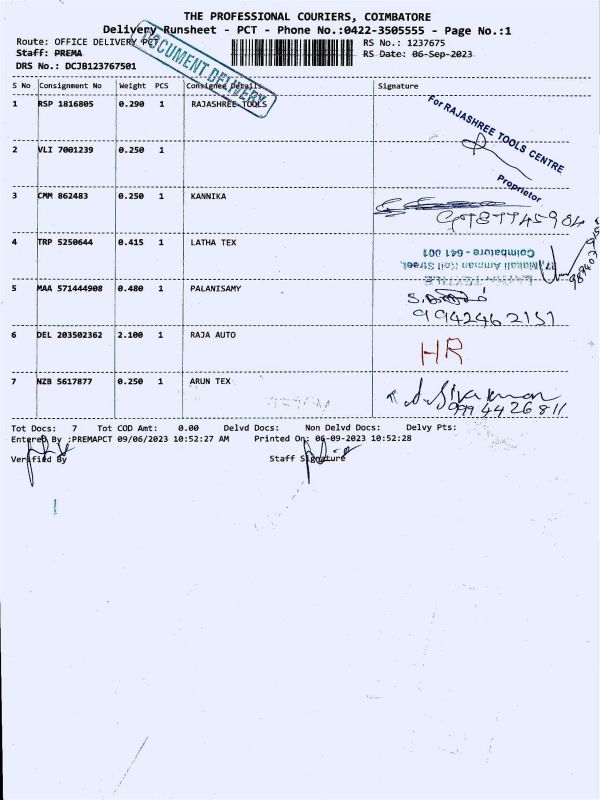 THE PROFESSIONAL COURIERS, COIMBATORE
Delivery Runsheet - PCT - Phone No.:0422-3505555 - Page No.:1
Route: OFFICE DELIVERY PCT
RS No.: 1237675
Staff: PREMA
RS Date: 06-Sep-2023
DRS No.: DCJB123767501
DOCUMENT DELIVERY
S No Consignment No Weight PCS Consignee Details Signature
1 RSP 1816805 0.290 1 RAJASHREE TOOLS
For RAJASHREE TOOLS CENTRE
Proprietor
2 VLI 7001239 0.250 1
3 CMM 862483 0.250 1 KANNIKA
4 TRP 5250644 0.415 1 LATHA TEX
Makali Amman Koil Street,
Coimbatore - 641 001
5 MAA 571444908 0.480 1 PALANISAMY
9942462151
6 DEL 203502362 2.100 1 RAJA AUTO
HR
7 NZB 5617877 0.250 1 ARUN TEX
A. Sivaraman
9994426811
Tot Docs: 7 Tot COD Amt: 0.00 Delvd Docs: Non Delvd Docs: Delvy Pts:
Entered By :PREMAPCT 09/06/2023 10:52:27 AM Printed On: 06-09-2023 10:52:28
Verified By Staff Signature